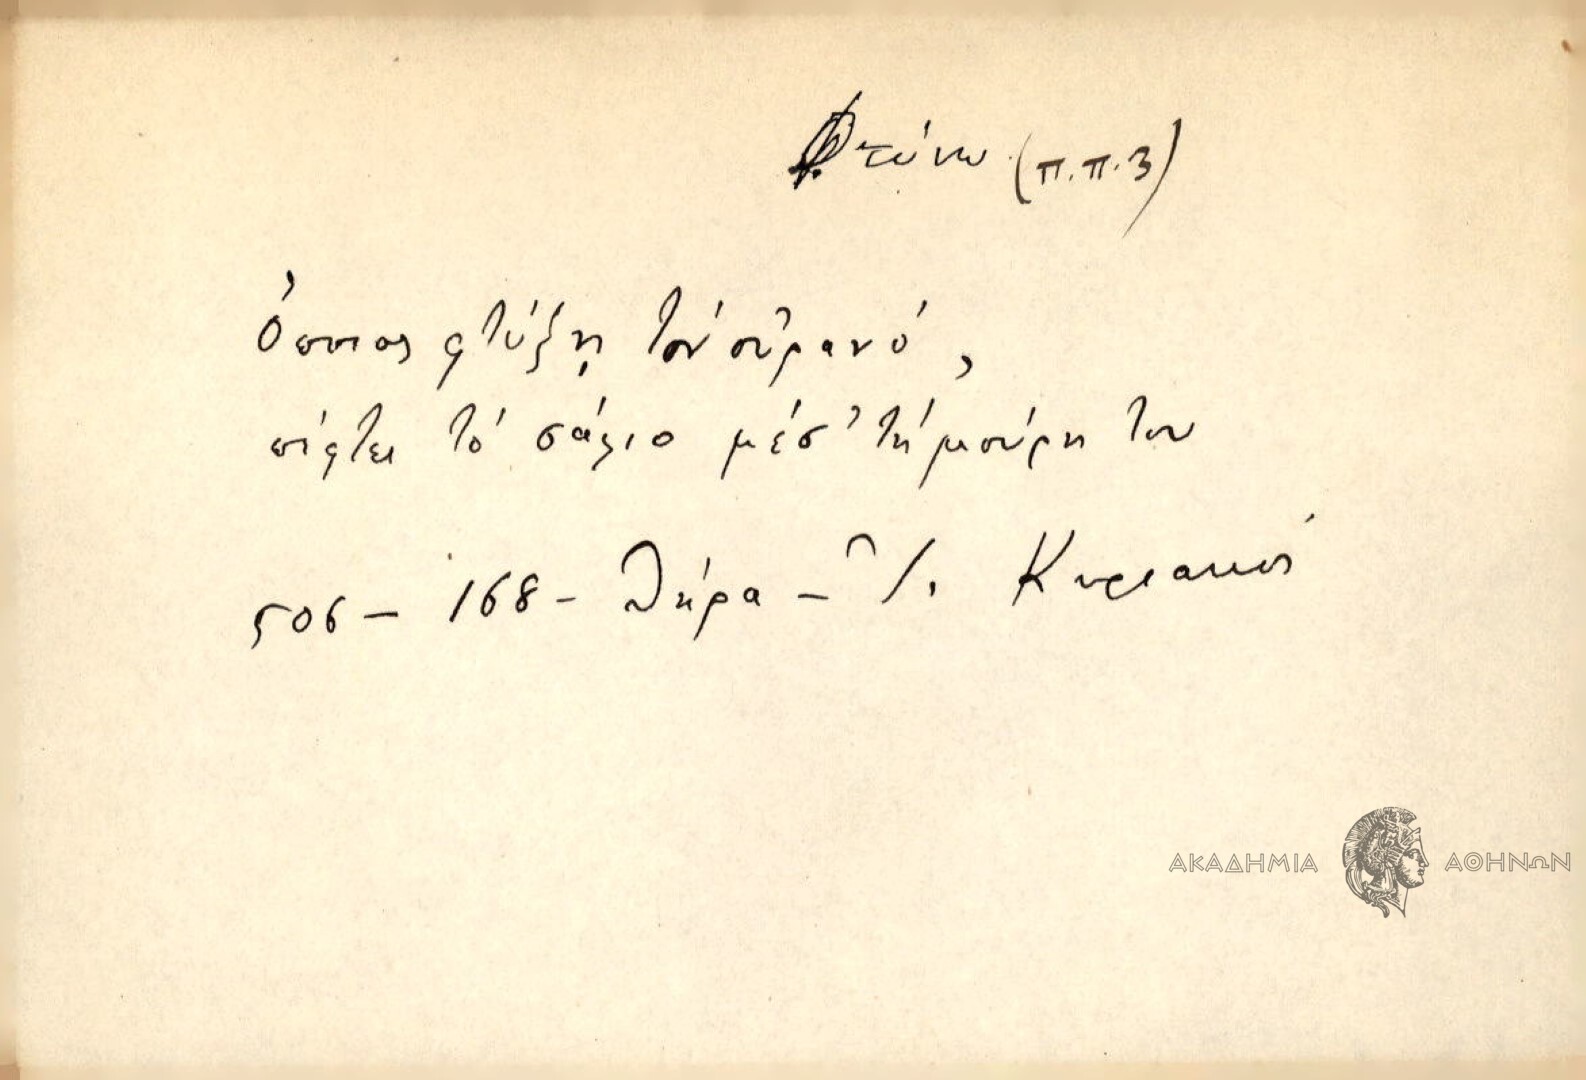 Φτύνω (π.π.3)
Ὅποιος φτύξῃ τόν οὐρανό,
πέφτει τό σάλιο μέσ' τή μούρη του
506 - 168 - Θήρα - Ἰ. Κυριακός
ΑΚΑΔΗΜΙΑ ΑΘΗΝΩΝ